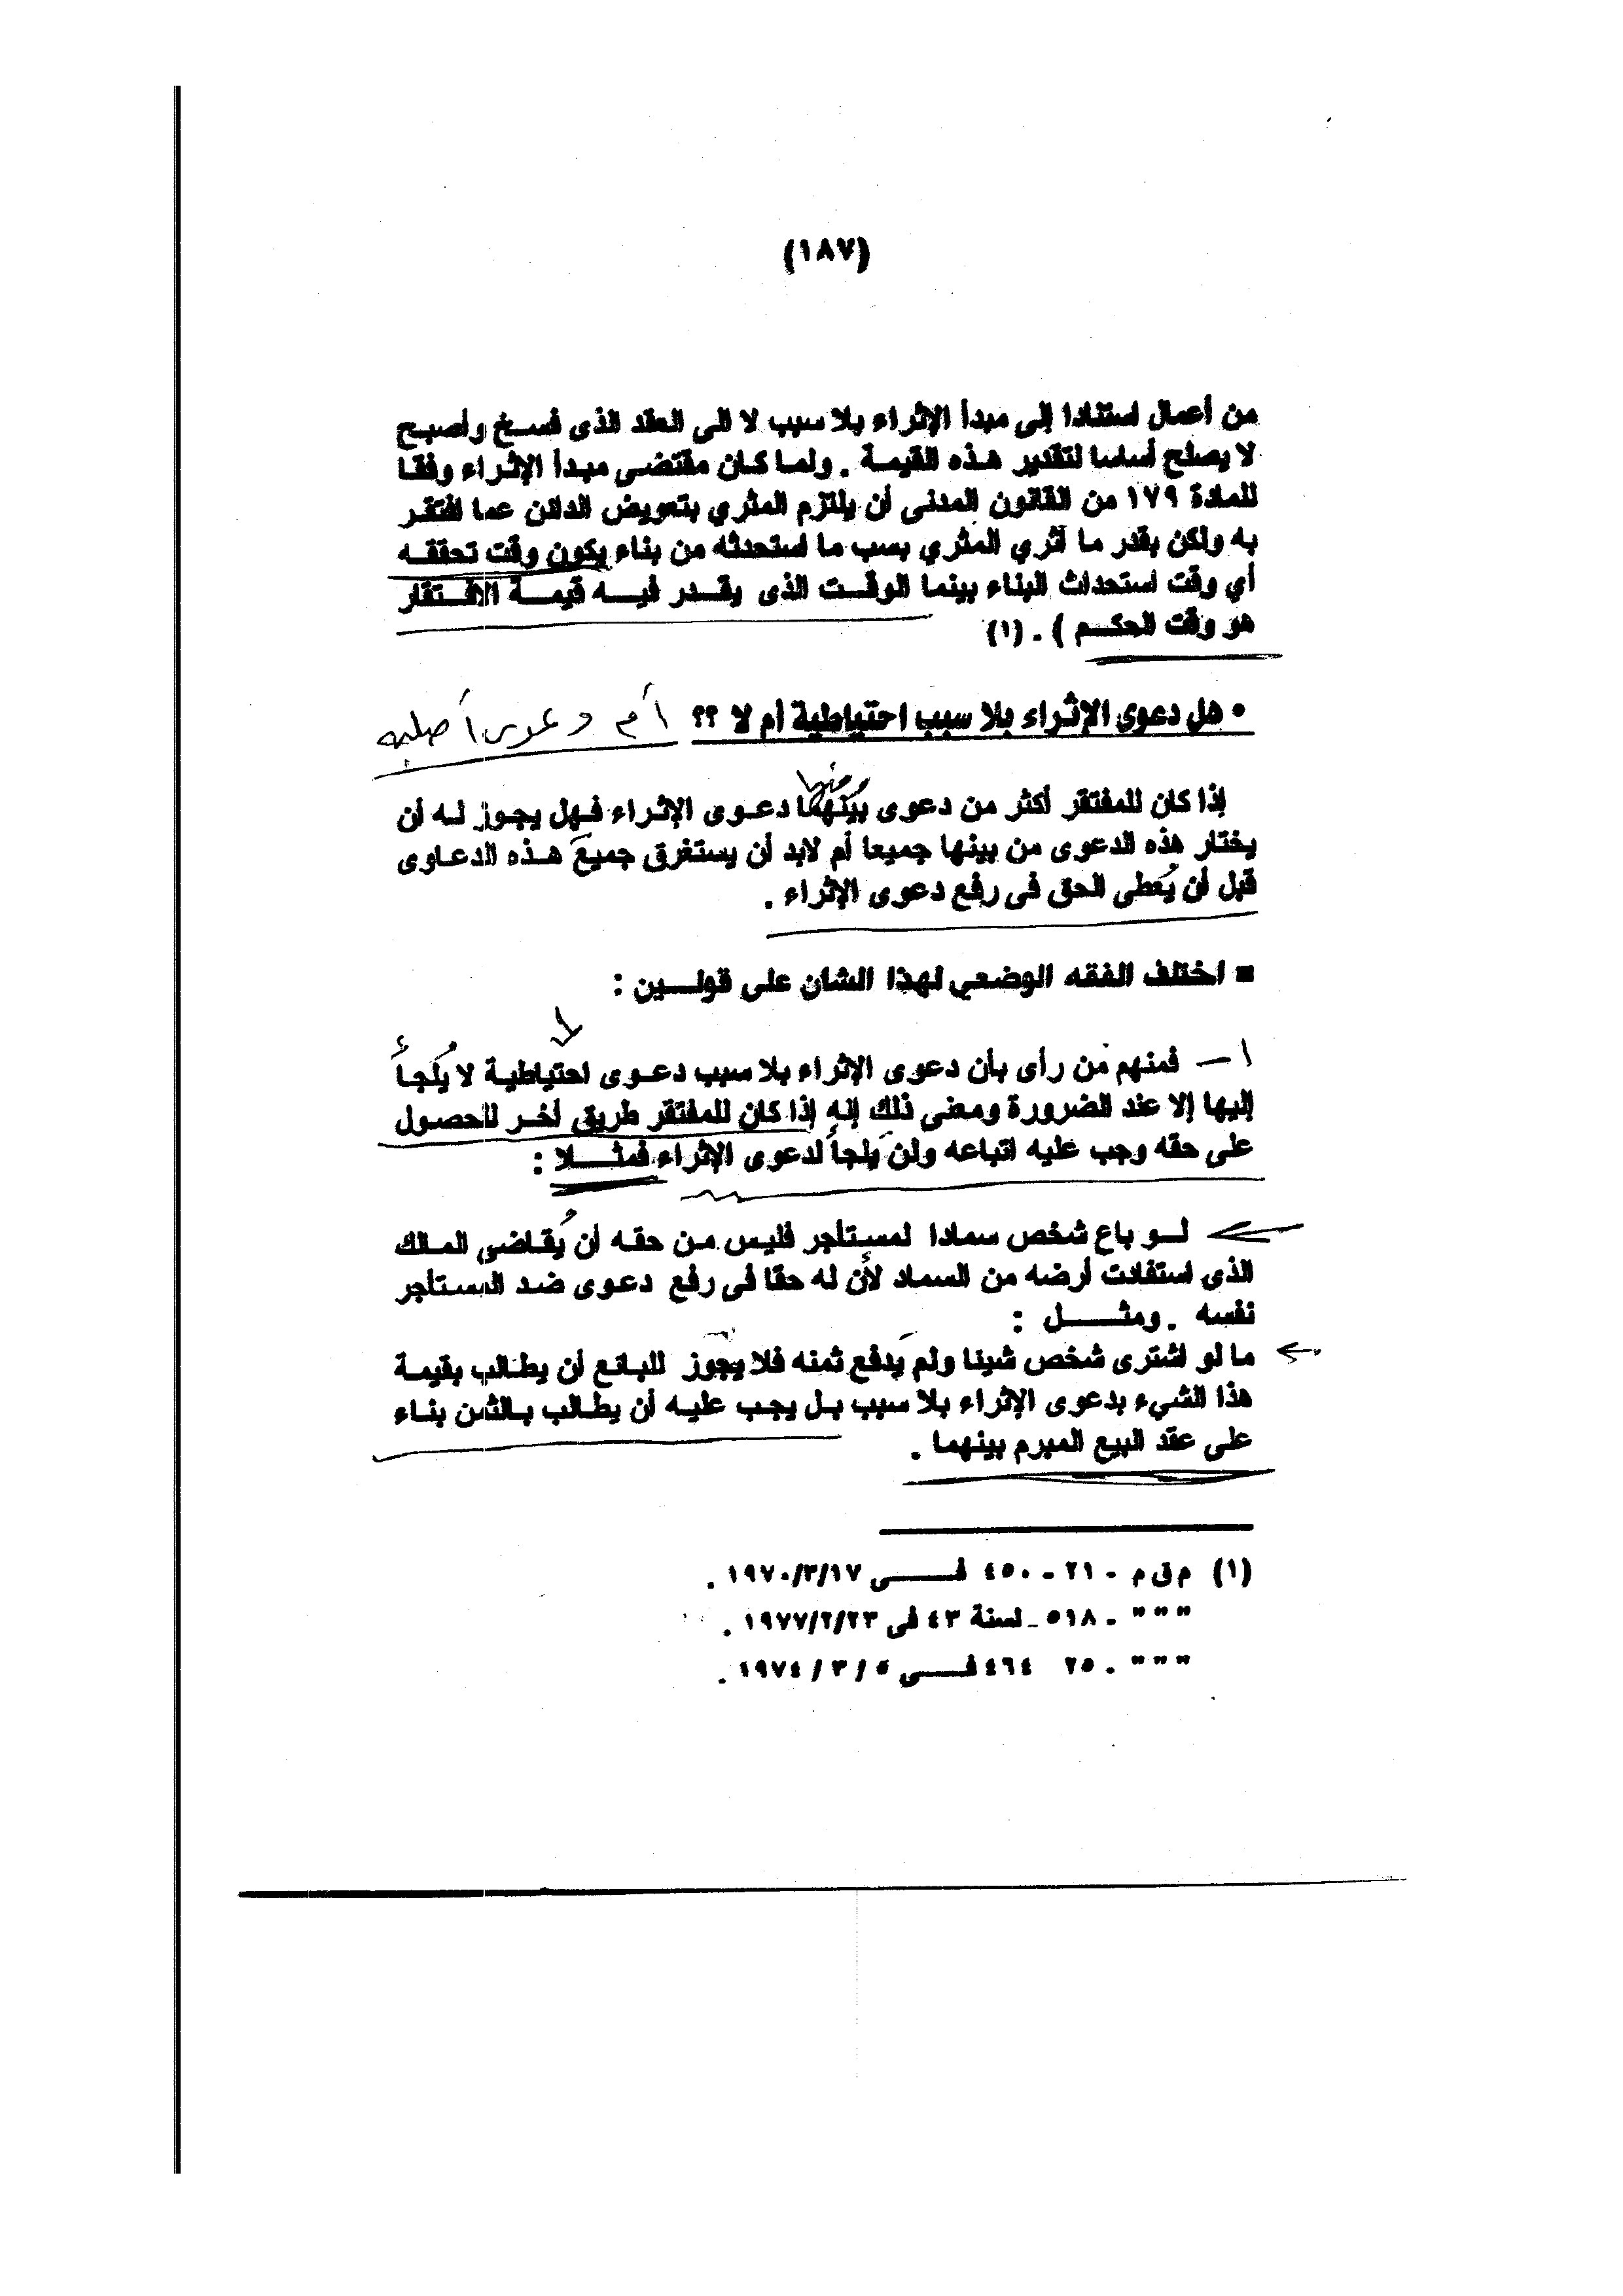 (١٨٧)
من أعمال استنادا إلى مبدأ الإثراء بلا سبب لا الى العقد الذى فسخ وأصبح
لا يصلح أساسا لتقدير هذه القيمة . ولما كان مقتضى مبدأ الإثراء وفقا
للمادة ١٧٩ من القانون المدنى أن يلتزم المثري بتعويض الدائن عما افتقر
به ولكن بقدر ما أثري المثري بسب ما استحدثه من بناء يكون وقت تحققه
أي وقت استحداث البناء بينما الوقت الذى يقدر فيه قيمة الافتقار
هو وقت الحكم ) . (١)
• هل دعوى الإثراء بلا سبب احتياطية أم لا ؟؟ أم دعوى أصليه
إذا كان للمفتقر أكثر من دعوى بينهما ومنها دعوى الإثراء فهل يجوز له أن
يختار هذه الدعوى من بينها جميعا أم لابد أن يستغرق جميعَ هذه الدعاوى
قبل أن يُعطى الحق فى رفع دعوى الإثراء .
■ اختلف الفقه الوضعي لهذا الشان على قولين :
١ – فمنهم من رأى بأن دعوى الإثراء بلا سبب دعوى احتياطية لا يُلجأُ
إليها إلا عند الضرورة ومعنى ذلك إنه إذا كان للمفتقر طريق أخر للحصول
على حقه وجب عليه اتباعه ولن يَلجأ لدعوى الإثراء فمثلا :
لو باع شخص سمادا لمستأجر فليس من حقه أن يُقاضي المالك
الذى استفادت أرضه من السماد لأن له حقا فى رفع دعوى ضد المستأجر
نفسه . ومثل :
ما لو اشترى شخص شيئا ولم يَدفع ثمنه فلا يجوز للبائع أن يطالب بقيمة
هذا الشيء بدعوى الإثراء بلا سبب بل يجب عليه أن يطالب بالثمن بناء
على عقد البيع المبرم بينهما .
(١) م ق م - ٢١ - ٤٥٠ فى ١٩٧٠/٣/١٧ .
" " " - ٥١٨ - لسنة ٤٣ فى ١٩٧٧/٢/٢٣ .
" " " - ٢٥ ٤٦٤ فى ٥ / ٣ / ١٩٧٤ .